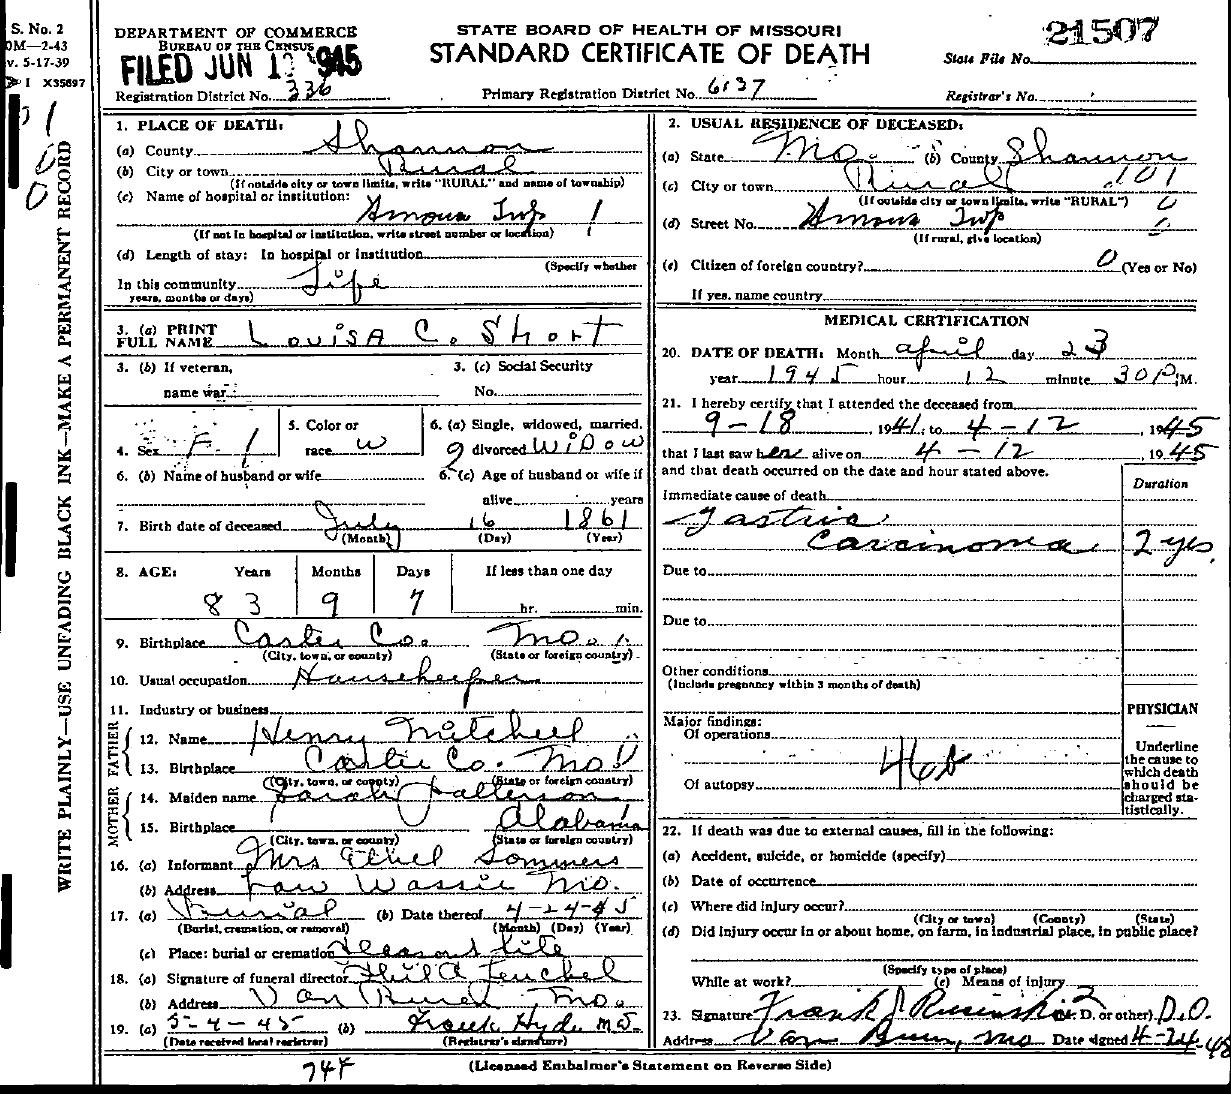 S. No. 2
OM—2-43
v. 5-17-39
I X35697
WRITE PLAINLY—USE UNFADING BLACK INK—MAKE A PERMANENT RECORD
DEPARTMENT OF COMMERCE
BUREAU OF THE CENSUS
FILED JUN 1 1945
Registration District No. 336
STATE BOARD OF HEALTH OF MISSOURI
STANDARD CERTIFICATE OF DEATH
Primary Registration District No. 6137
21507
State File No.
Registrar's No.
1. PLACE OF DEATH:
(a) County Shannon
(b) City or town Rural
(If outside city or town limits, write "RURAL" and name of township)
(c) Name of hospital or institution:
Twp 1
(If not in hospital or institution, write street number or location)
(d) Length of stay: In hospital or institution
(Specify whether
In this community Life
years, months or days)
3. (a) PRINT FULL NAME Louisa C. Short
3. (b) If veteran, name war
3. (c) Social Security No.
4. Sex F 1
5. Color or race W
6. (a) Single, widowed, married, divorced 2 Widow
6. (b) Name of husband or wife
6. (c) Age of husband or wife if alive years
7. Birth date of deceased July 16 1861
(Month) (Day) (Year)
8. AGE: Years Months Days If less than one day
83 9 7 hr. min.
9. Birthplace Carter Co. Mo.
(City, town, or county) (State or foreign country)
10. Usual occupation Housekeeper
11. Industry or business
FATHER
12. Name Henry Mitchell
13. Birthplace Carter Co. Mo.
(City, town, or county) (State or foreign country)
MOTHER
14. Maiden name Sarah Patterson
15. Birthplace Alabama
(City, town, or county) (State or foreign country)
16. (a) Informant Mrs Ethel Sommers
(b) Address Low Wassie Mo.
17. (a) Burial (b) Date thereof 4-24-45
(Burial, cremation, or removal) (Month) (Day) (Year)
(c) Place: burial or cremation
18. (a) Signature of funeral director Phil A
(b) Address Van Buren Mo.
19. (a) 5-4-45 (b) Frank Hyde MD
(Date received local registrar) (Registrar's signature)
2. USUAL RESIDENCE OF DECEASED:
(a) State Mo. (b) County Shannon
(c) City or town Rural 101
(If outside city or town limits, write "RURAL") 0
(d) Street No. Twp
(If rural, give location)
(e) Citizen of foreign country? 0 (Yes or No)
If yes, name country
MEDICAL CERTIFICATION
20. DATE OF DEATH: Month April day 23
year 1945 hour 12 minute 30 P.M.
21. I hereby certify that I attended the deceased from
9-18, 1941, to 4-12, 1945
that I last saw her alive on 4-12 1945
and that death occurred on the date and hour stated above.
Duration
Immediate cause of death
Gastric
Carcinoma 2 yrs.
Due to
Due to
Other conditions
(Include pregnancy within 3 months of death)
Major findings:
Of operations
46b
Of autopsy
PHYSICIAN
Underline the cause to which death should be charged statistically.
22. If death was due to external causes, fill in the following:
(a) Accident, suicide, or homicide (specify)
(b) Date of occurrence
(c) Where did injury occur?
(City or town) (County) (State)
(d) Did injury occur in or about home, on farm, in industrial place, in public place?
(Specify type of place)
While at work? (e) Means of injury
23. Signature Frank J (M. D. or other) D.O.
Address Van Buren, Mo Date signed 4-24-45
744
(Licensed Embalmer's Statement on Reverse Side)